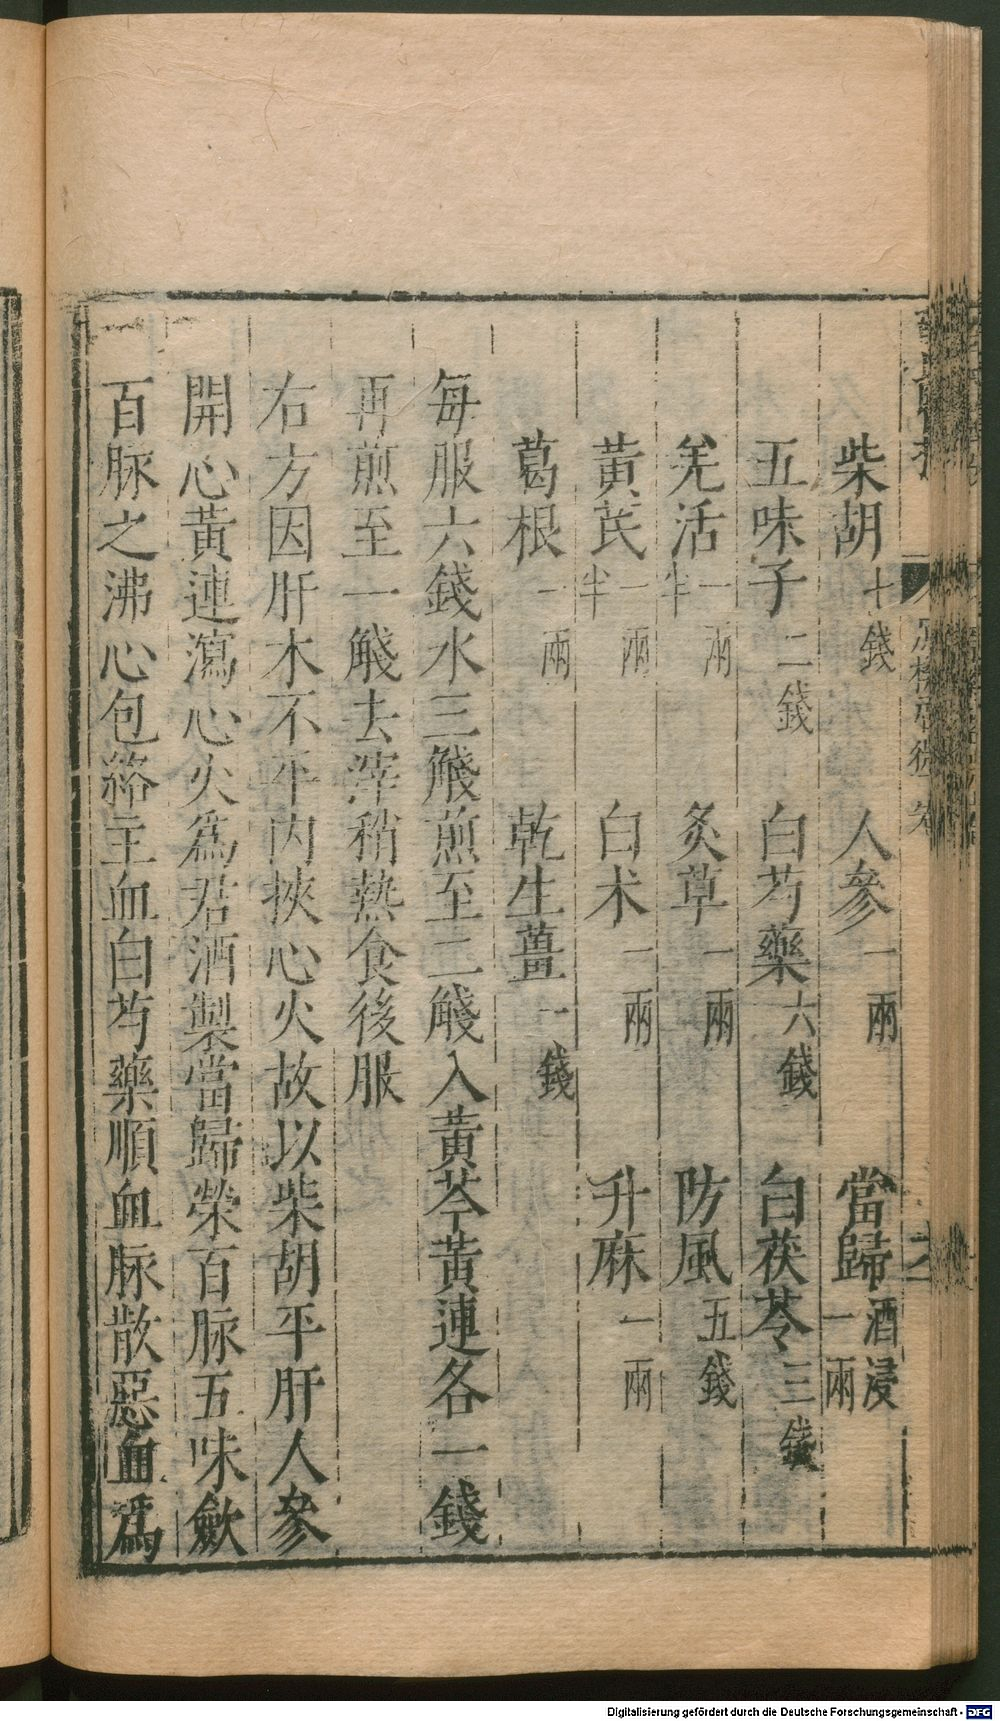 柴胡十錢 人參一兩 當歸酒浸一兩
五味子二錢 白芍藥六錢 白茯苓三錢
羌活一兩半 炙草一兩 防風五錢
黃芪一兩半 白术一兩 升麻一兩
葛根一兩 乾生薑一錢
每服六錢水三觥煎至二觥入黃芩黃連各一錢
再煎至一觥去滓稍熱食後服
右方因肝木不平內挾心火故以柴胡平肝人參
開心黃連瀉心火爲君酒製當歸榮百脉五味斂
百脉之沸心包絡主血白芍藥順血脉散惡血爲
Digitalisierung gefördert durch die Deutsche Forschungsgemeinschaft - DFG